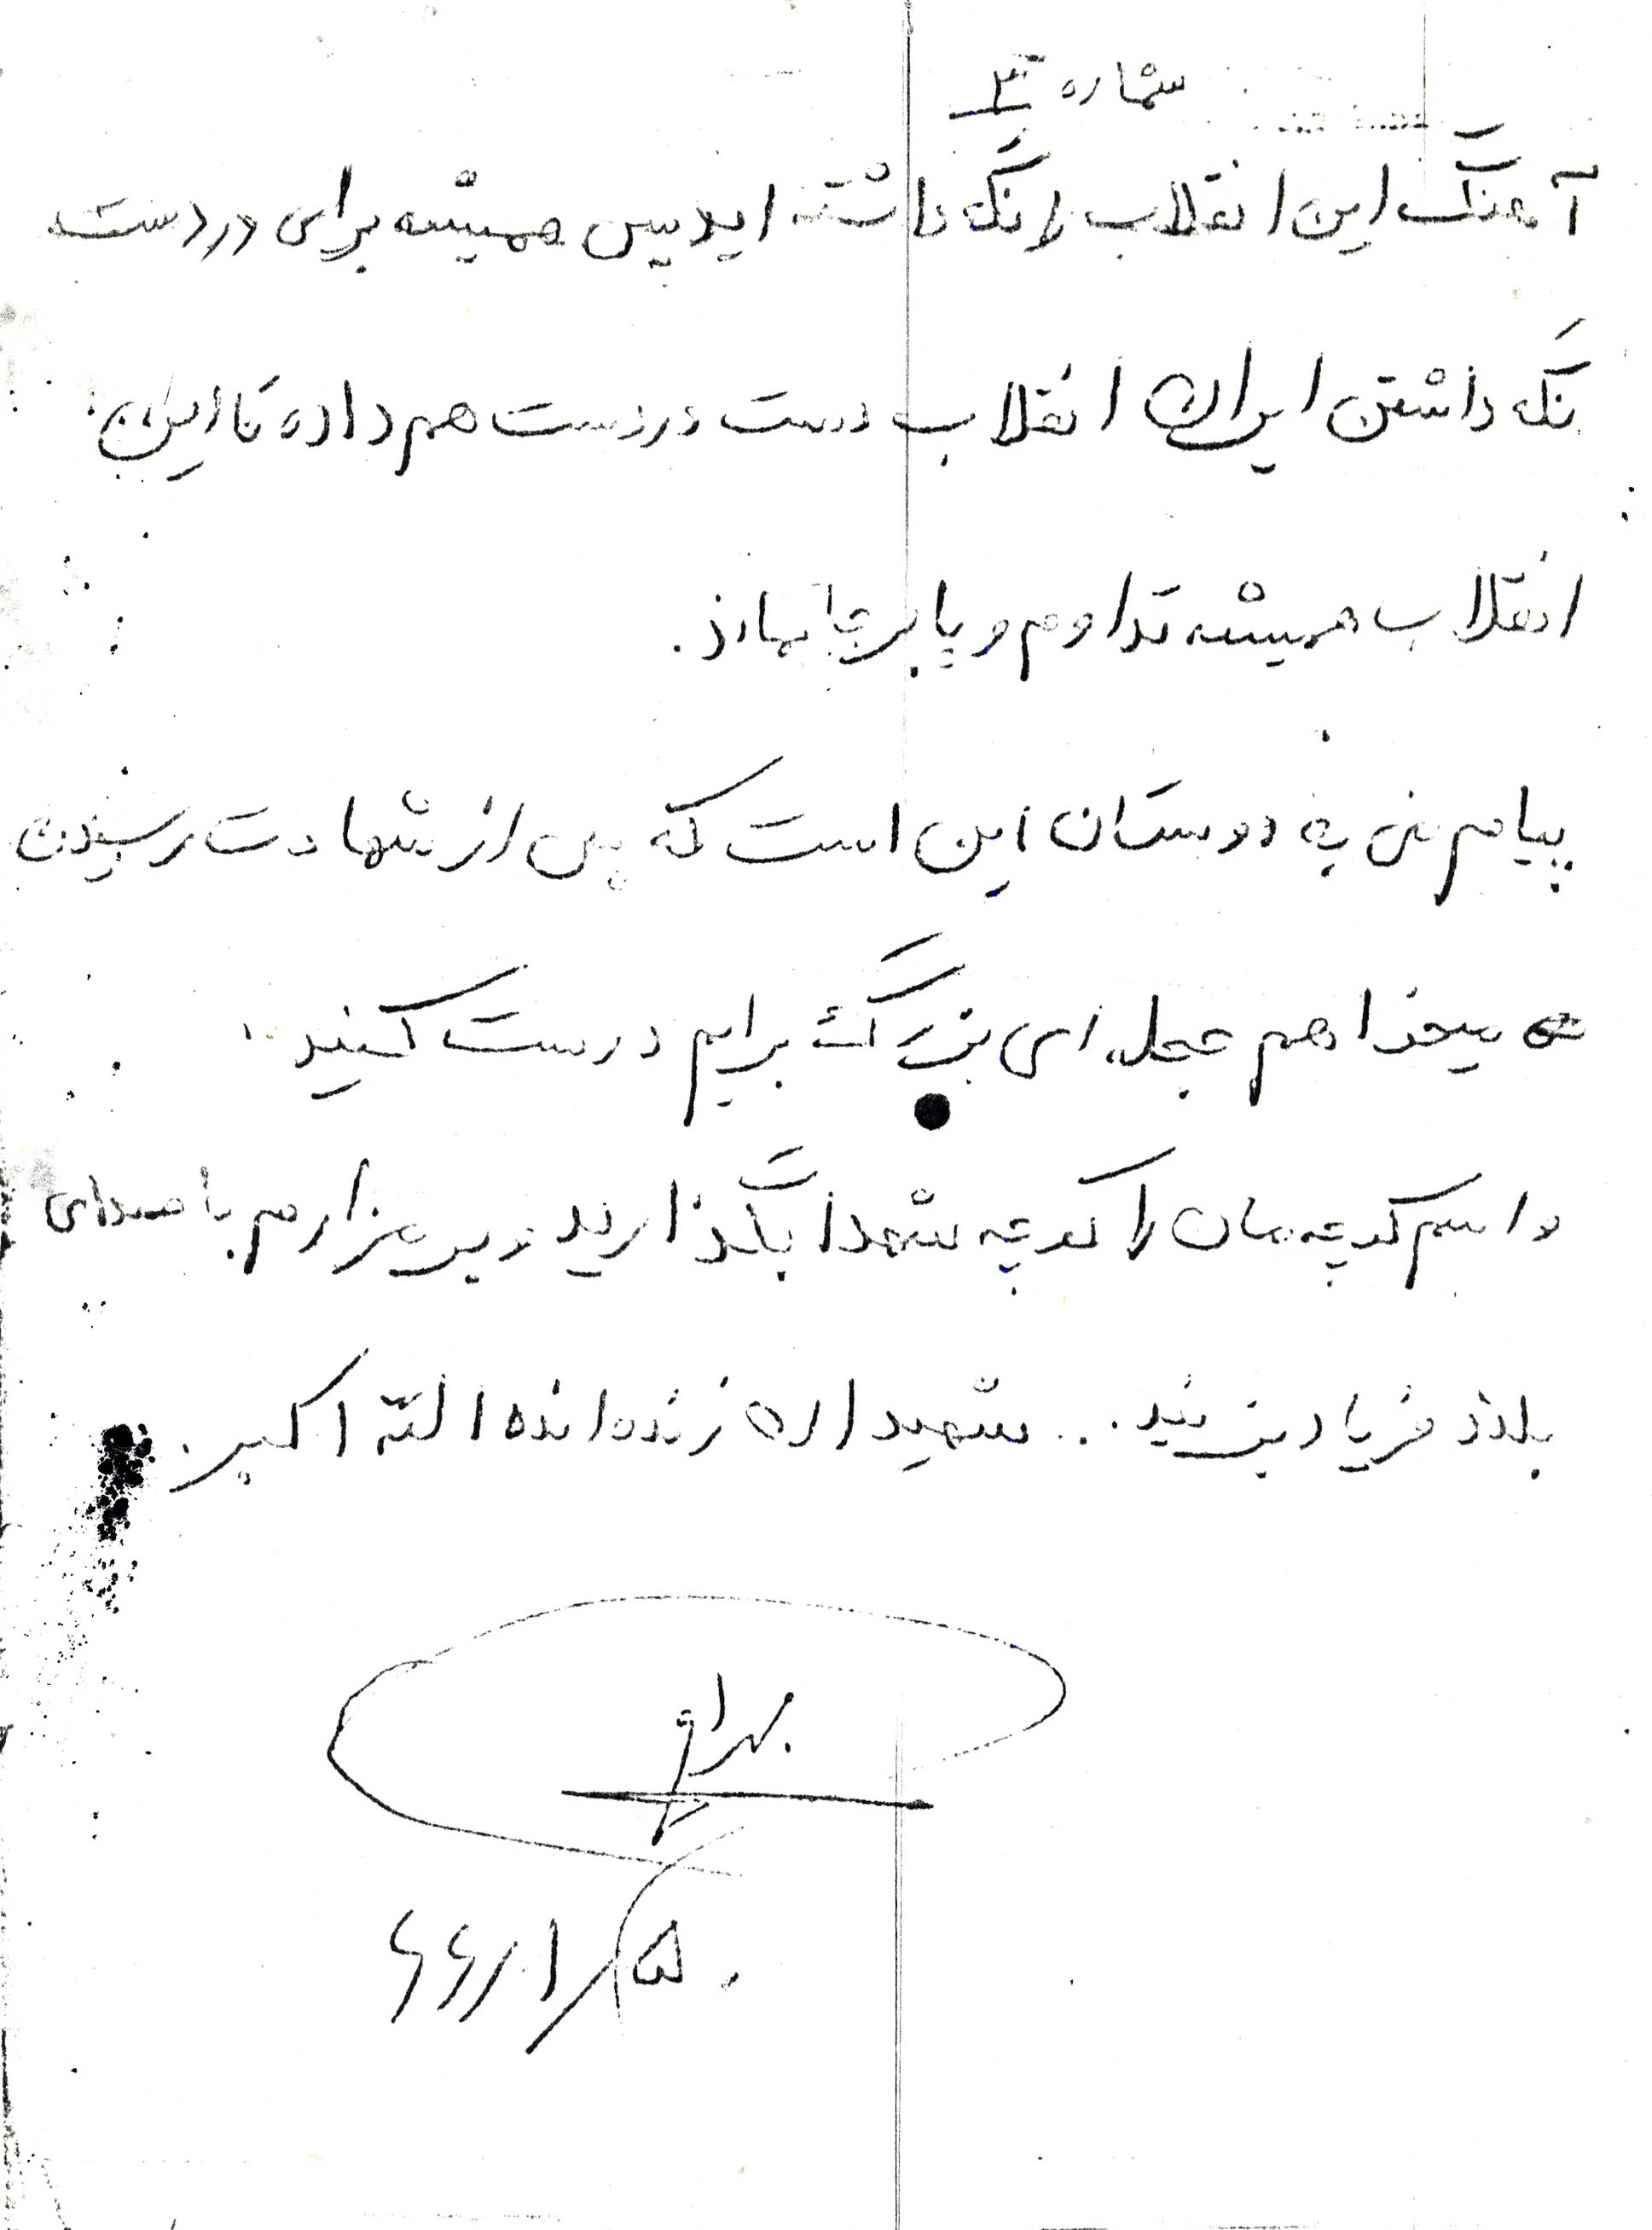 شماره ۳
آهنگ این انقلاب را نگه داشته اید پس همیشه برای در دست
نگه داشتن ایران انقلاب دست در دست هم داده تا این
انقلاب همیشه تداوم و پا برجا بماند.
پیام من به دوستان این است که پس از شهادت رسیدن
میخواهم حجله ای بزرگ برایم درست کنید.
و اسم کوچه مان را کوچه شهدا بگذارید و بر مزارم با صدای
بلند فریاد بزنید.. شهیدان زنده اند الله اکبر.
بهرام
۵/۱/۶۶